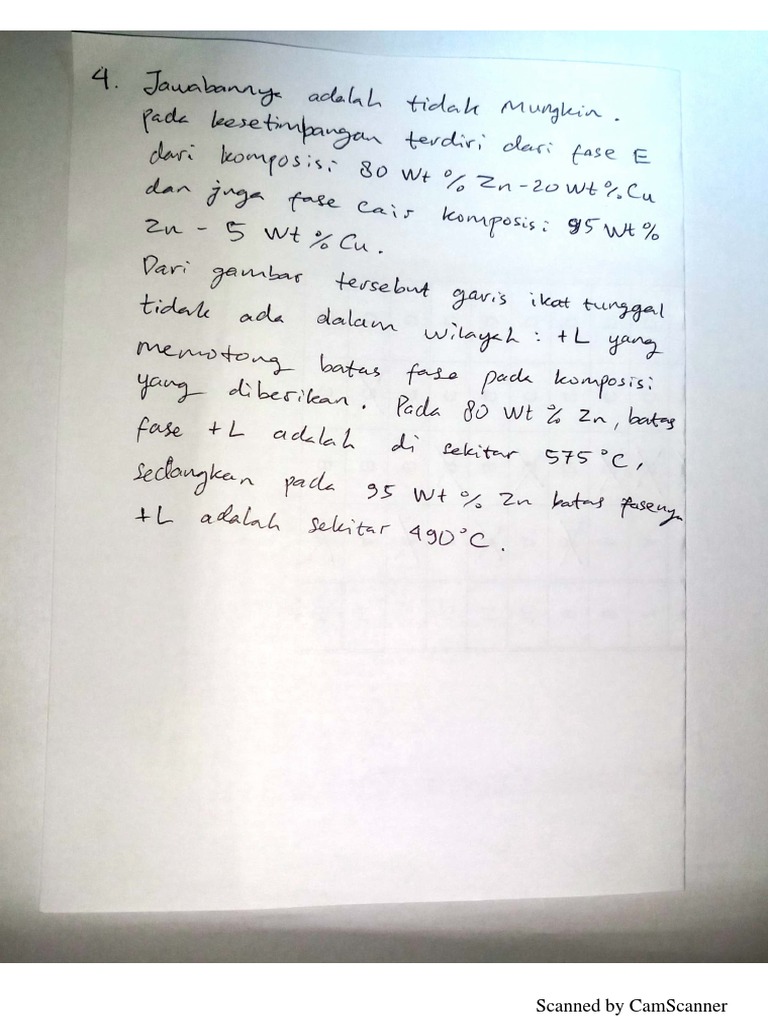 4. Jawabannya adalah tidak mungkin.
pada kesetimbangan terdiri dari fase E
dari komposisi 80 Wt % Zn-20 wt % Cu
dan juga fase cair komposisi 95 Wt %
Zn - 5 Wt % Cu.
Dari gambar tersebut garis ikat tunggal
tidak ada dalam wilayah : +L yang
memotong batas fase pada komposisi
yang diberikan. Pada 80 Wt % Zn, batas
fase +L adalah di sekitar 575°C,
sedangkan pada 95 Wt % Zn batas fasenya
+L adalah sekitar 490°C.
Scanned by CamScanner